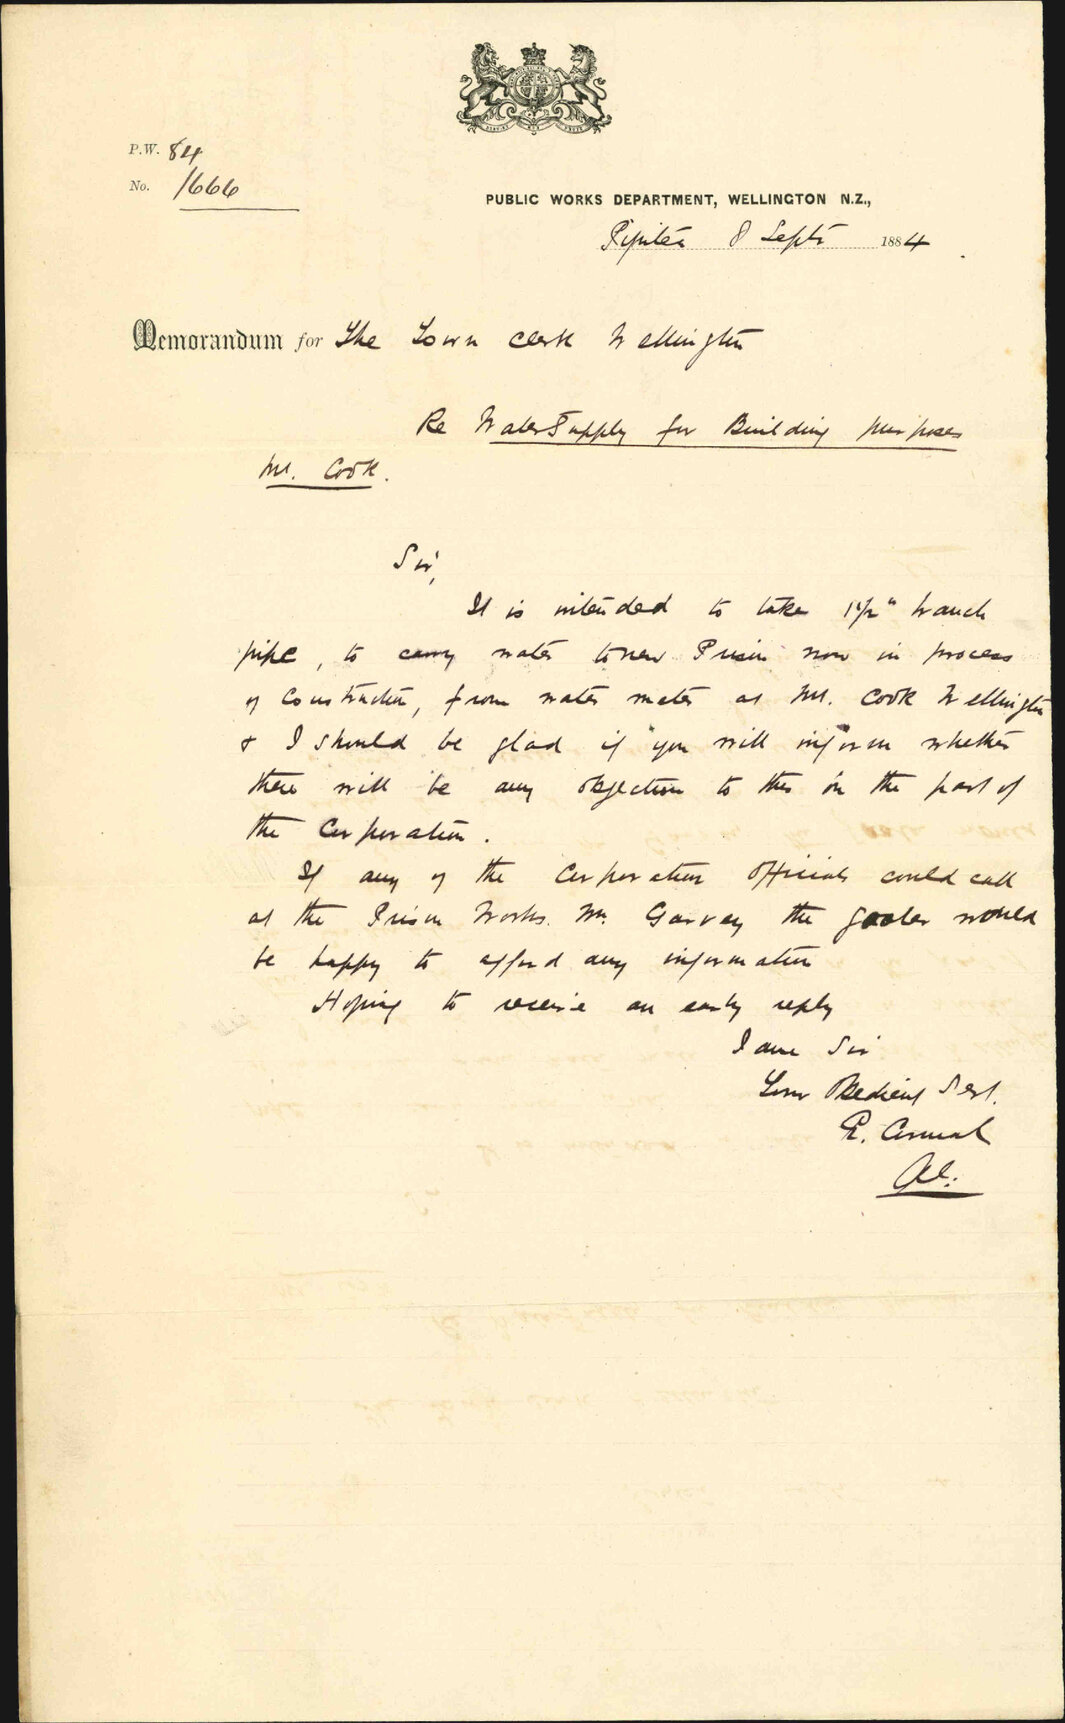 P.W. 84
No. 1666
PUBLIC WORKS DEPARTMENT, WELLINGTON N.Z.,
Pipitea 8 Septr 1884
Memorandum for The Town Clerk Wellington
Re Water Supply for Building purposes
Mt. Cook.
Sir,
It is intended to take 1 1/2" branch
pipe, to carry water to new Prison now in process
of Construction, from water meter at Mt. Cook Wellington
& I should be glad if you will inform whether
there will be any objection to this on the part of
the Corporation.
If any of the Corporation Officials could call
at the Prison Works. Mr. Garvey the gaoler would
be happy to afford any information
Hoping to receive an early reply
I am Sir
Your Obedient Sert.